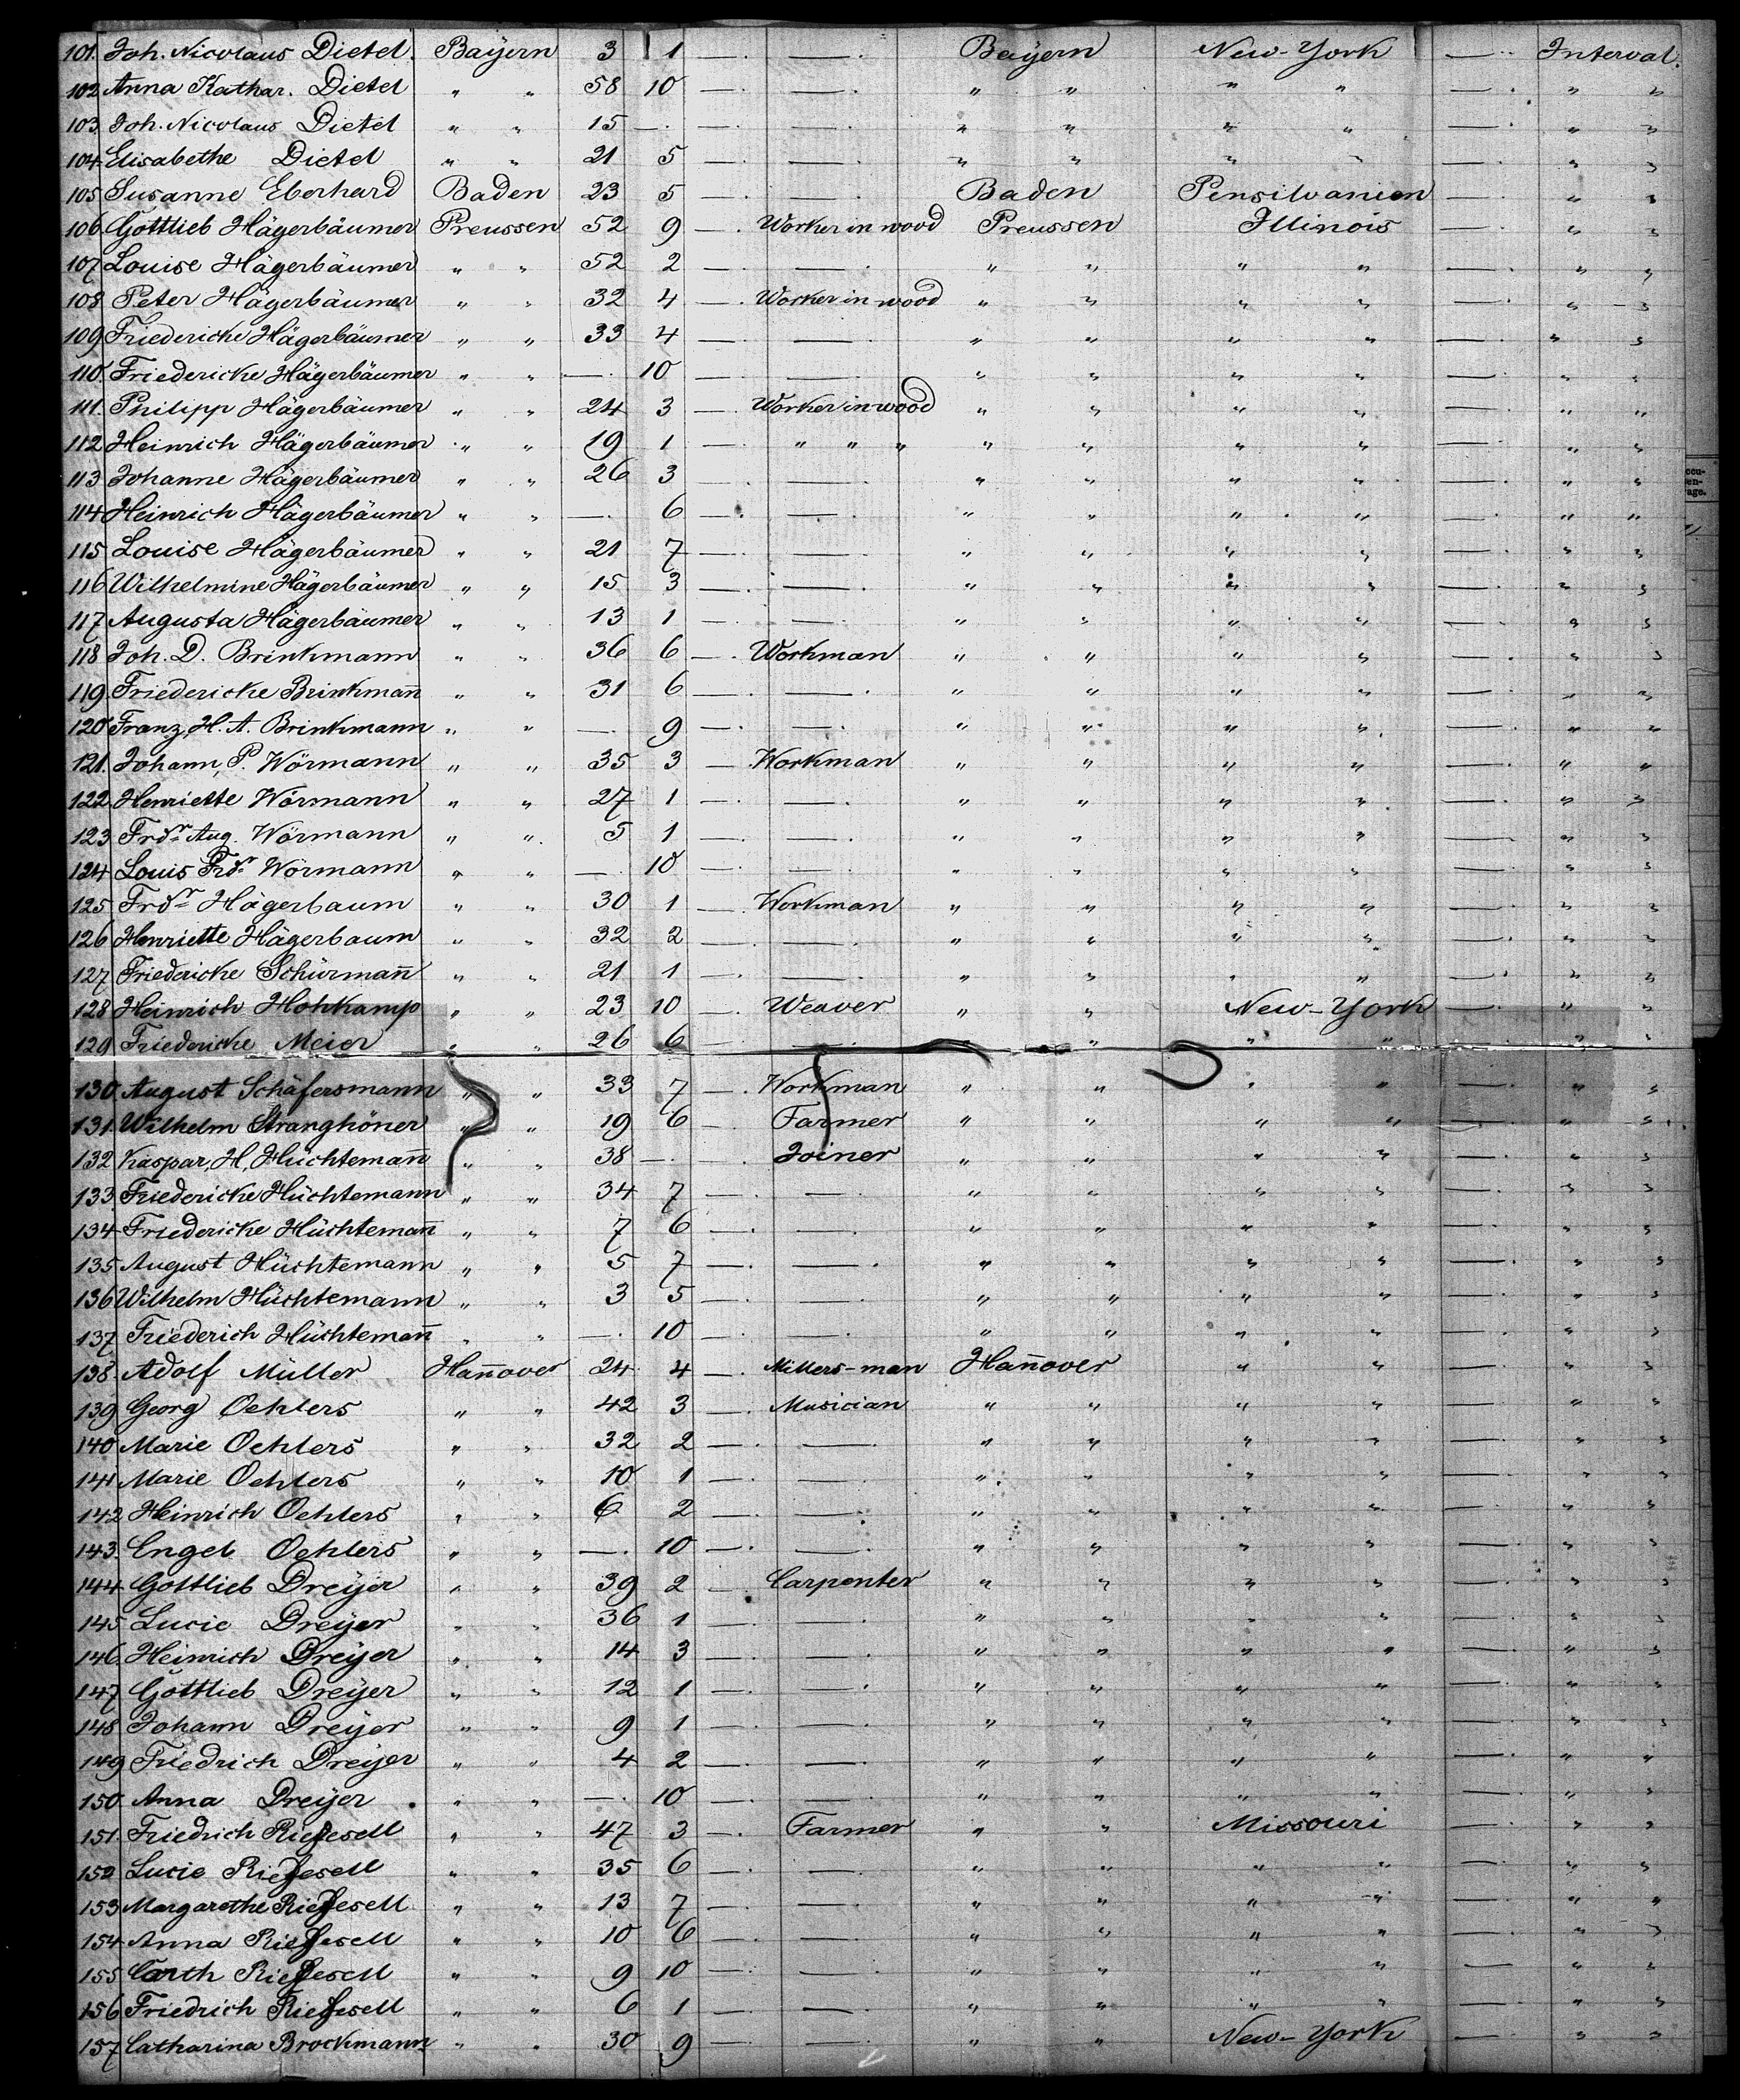 101. Joh. Nicolaus Dietel. Bayern 3 1 —. —. Bayern New-York —. Interval.
102 Anna Kathar. Dietel " " 58 10 —. —. " " " " —. " "
103. Joh. Nicolaus Dietel " " 15 —. —. —. " " " " —. " "
104 Elisabethe Dietel " " 21 5 —. —. " " " " —. " "
105 Susanne Eberhard Baden 23 5 —. —. Baden Pensilvanien —. " "
106 Gottlieb Hägerbäumer Preussen 52 9 —. Worker in wood Preussen Illinois —. " "
107 Louise Hägerbäumer " " 52 2 —. —. " " " " —. " "
108 Peter Hägerbäumer " " 32 4 —. Worker in wood " " " " —. " "
109 Friedericke Hägerbäumer " " 33 4 —. —. " " " " —. " "
110. Friedericke Hägerbäumer " " —. 10 —. —. " " " " —. " "
111. Philipp Hägerbäumer " " 24 3 —. Worker in wood " " " " —. " "
112 Heinrich Hägerbäumer " " 19 1 —. " " " " " " " —. " "
113 Johanne Hägerbäumer " " 26 3 —. —. " " " " —. " "
114 Heinrich Hägerbäumer " " —. 6 —. —. " " " " —. " "
115 Louise Hägerbäumer " " 21 7 —. —. " " " " —. " "
116 Wilhelmine Hägerbäumer " " 15 3 —. —. " " " " —. " "
117 Augusta Hägerbäumer " " 13 1 —. —. " " " " —. " "
118 Joh. D. Brinkmann " " 36 6 —. Workman " " " " —. " "
119 Friedericke Brinkman̄ " " 31 6 —. —. " " " " —. " "
120 Franz, H. A. Brinkmann " " —. 9 —. —. " " " " —. " "
121. Johann, P. Wörmann " " 35 3 —. Workman " " " " —. " "
122 Henriette Wörmann " " 27 1 —. —. " " " " —. " "
123 Frdr. Aug. Wörmann " " 5 1 —. —. " " " " —. " "
124 Louis Frdr. Wörmann " " —. 10 —. —. " " " " —. " "
125 Frdr. Hägerbaum " " 30 1 —. Workman " " " " —. " "
126 Henriette Hägerbaum " " 32 2 —. —. " " " " —. " "
127 Friedericke Schürman̄ " " 21 1 —. —. " " " " —. " "
128 Heinrich Hohkamp " " 23 10 —. Weaver " " New-York —. " "
129 Friedericke Meier " " 26 6 —. —. " " " " —. " "
130. August Schäfersmann " " 33 7 —. Workman " " " " —. " "
131. Wilhelm Stranghöner " " 19 6 —. Farmer " " " " —. " "
132 Kaspar, H, Hüchteman̄ " " 38 —. —. Joiner " " " " —. " "
133. Friedericke Hüchtemann " " 34 7 —. —. " " " " —. " "
134 Friedericke Hüchteman̄ " " 7 6 —. —. " " " " —. " "
135 August Hüchtemann " " 5 7 —. —. " " " " —. " "
136 Wilhelm Hüchtemann " " 3 5 —. —. " " " " —. " "
137 Friederich Hüchteman̄ " " —. 10 —. —. " " " " —. " "
138. Adolf Müller Han̄over 24 4 —. Millers-man Han̄over " " —. " "
139 Georg Oehlers " " 42 3 —. Musician " " " " —. " "
140 Marie Oehlers " " 32 2 —. —. " " " " —. " "
141 Marie Oehlers " " 10 1 —. —. " " " " —. " "
142 Heinrich Oehlers " " 6 2 —. —. " " " " —. " "
143. Engel Oehlers " " —. 10 —. —. " " " " —. " "
144 Gottlieb Dreÿer " " 39 2 —. Carpenter " " " " —. " "
145 Lucie Dreÿer " " 36 1 —. —. " " " " —. " "
146. Heinrich Dreÿer " " 14 3 —. —. " " " " —. " "
147 Gottlieb Dreÿer " " 12 1 —. —. " " " " —. " "
148 Johann Dreÿer " " 9 1 —. —. " " " " —. " "
149 Friedrich Dreÿer " " 4 2 —. —. " " " " —. " "
150 Anna Dreÿer " " —. 10 —. —. " " " " —. " "
151. Friedrich Rießesell " " 47 3 —. Farmer " " Missouri —. " "
152 Lucie Rießesell " " 35 6 —. —. " " " " —. " "
153 Margarethe Rießesell " " 13 7 —. —. " " " " —. " "
154 Anna Rießesell " " 10 6 —. —. " " " " —. " "
155 Carth Rießesell " " 9 10 —. —. " " " " —. " "
156 Friedrich Rießesell " " 6 1 —. —. " " " " —. " "
157 Catharina Brockmann " " 30 9 —. —. " " New-York —. " "